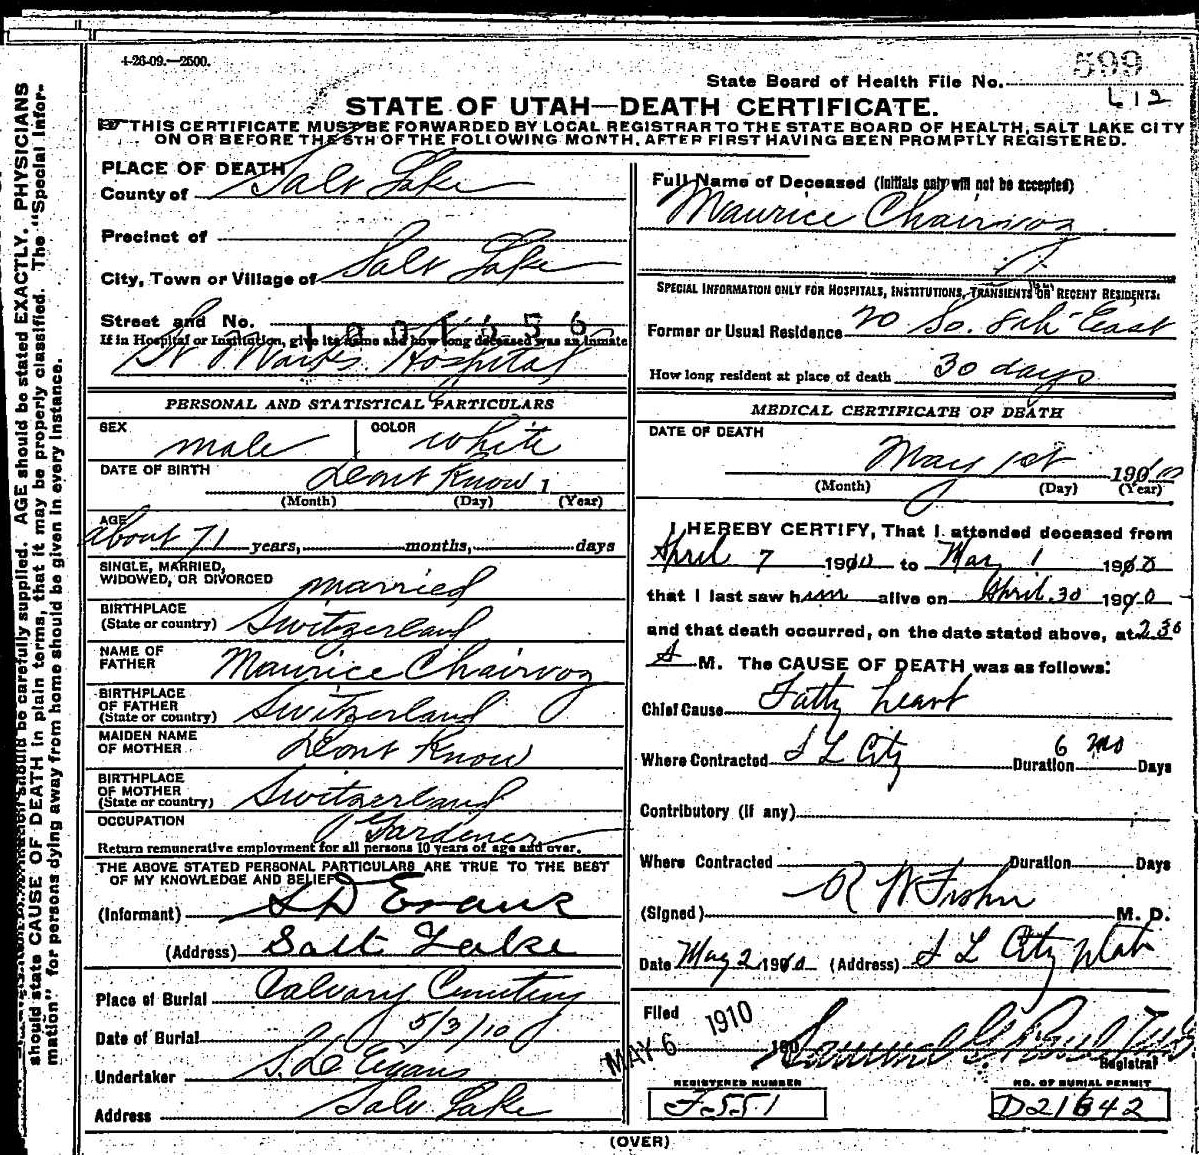 4-26-09.—2500.
599
State Board of Health File No.
612
STATE OF UTAH—DEATH CERTIFICATE.
THIS CERTIFICATE MUST BE FORWARDED BY LOCAL REGISTRAR TO THE STATE BOARD OF HEALTH, SALT LAKE CITY
ON OR BEFORE THE 5TH OF THE FOLLOWING MONTH, AFTER FIRST HAVING BEEN PROMPTLY REGISTERED.
PLACE OF DEATH
County of Salt Lake
Precinct of
City, Town or Village of Salt Lake
Street and No.
1001556
If in Hospital or Institution, give its name and how long deceased was an inmate
St Marks Hospital
PERSONAL AND STATISTICAL PARTICULARS
SEX male COLOR white
DATE OF BIRTH Dont Know 1
(Month) (Day) (Year)
AGE about 71 years, months, days
SINGLE, MARRIED,
WIDOWED, OR DIVORCED married
BIRTHPLACE
(State or country) Switzerland
NAME OF
FATHER Maurice Chairvoz
BIRTHPLACE
OF FATHER
(State or country) Switzerland
MAIDEN NAME
OF MOTHER Dont Know
BIRTHPLACE
OF MOTHER
(State or country) Switzerland
OCCUPATION Gardener
Return remunerative employment for all persons 10 years of age and over.
THE ABOVE STATED PERSONAL PARTICULARS ARE TRUE TO THE BEST
OF MY KNOWLEDGE AND BELIEF
(Informant) S D Evans
(Address) Salt Lake
Place of Burial Calvary Cemetery
Date of Burial 5/3/10
Undertaker S. D. Evans
Address Salt Lake
Full Name of Deceased (Initials only will not be accepted)
Maurice Chairvoz
SPECIAL INFORMATION ONLY FOR HOSPITALS, INSTITUTIONS, TRANSIENTS OR RECENT RESIDENTS.
Former or Usual Residence 20 So. 8th East
How long resident at place of death 30 days
MEDICAL CERTIFICATE OF DEATH
DATE OF DEATH
May 1st 1910
(Month) (Day) (Year)
I HEREBY CERTIFY, That I attended deceased from
April 7 1910 to May 1 1910
that I last saw him alive on April 30 1910
and that death occurred, on the date stated above, at 2 30
A M. The CAUSE OF DEATH was as follows:
Chief Cause Fatty heart
Where Contracted S L City Duration 6 mo Days
Contributory (if any)
Where Contracted Duration Days
(Signed) R W Frohn M. D.
Date May 2 1910 (Address) S L City Utah
Filed
MAY 6 1910
190
Registrar
REGISTERED NUMBER
F-551
NO. OF BURIAL PERMIT
D21642
(OVER)
should be carefully supplied. AGE should be stated EXACTLY. PHYSICIANS
should state CAUSE OF DEATH in plain terms, that it may be properly classified. The "Special Infor-
mation" for persons dying away from home should be given in every instance.